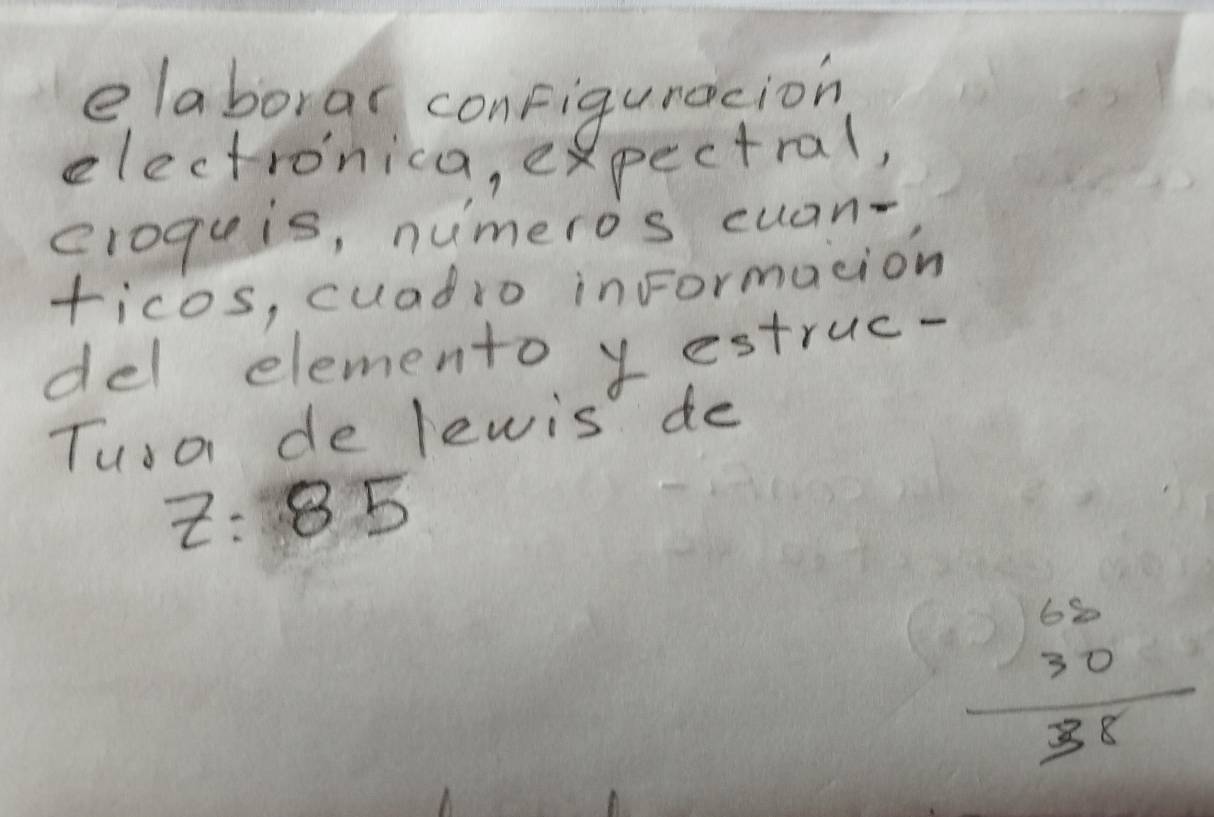 elaborar configuración
electrónica, expectral,
croquis, números cuan-
ticos, cuadro información
del elemento y estruc-
Tura de lewis de
Z: 85
68
30
38